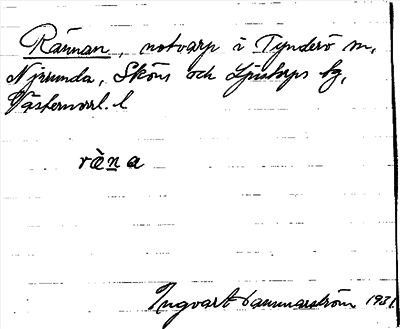 Rännan, notvarp i Tynderö sn,
Njurunda, Sköns och Ljustorps tg,
Västernorrl. l
rä̀na
Ingvart Hammarström 1931